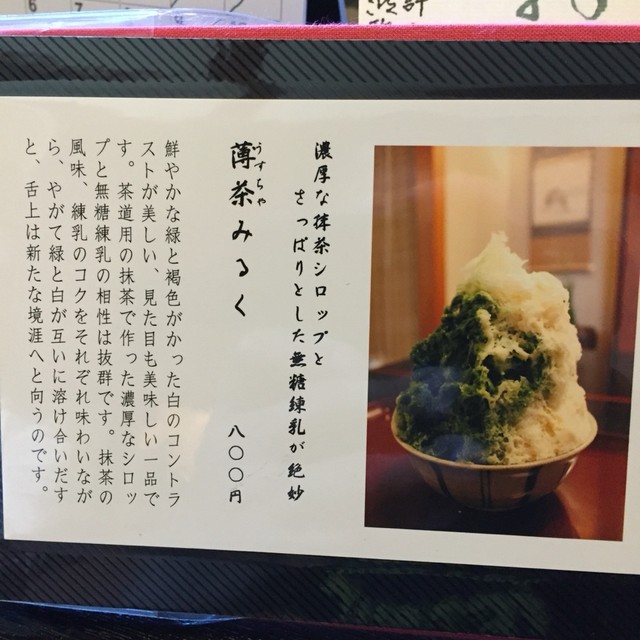 濃厚な抹茶シロップと
さっぱりとした無糖練乳が絶妙
うすちゃ
薄茶みるく 八〇〇円
鮮やかな緑と褐色がかった白のコントラ
ストが美しい、見た目も美味しい一品で
す。茶道用の抹茶で作った濃厚なシロッ
プと無糖練乳の相性は抜群です。抹茶の
風味、練乳のコクをそれぞれ味わいなが
ら、やがて緑と白が互いに溶け合いだす
と、舌上は新たな境涯へと向うのです。